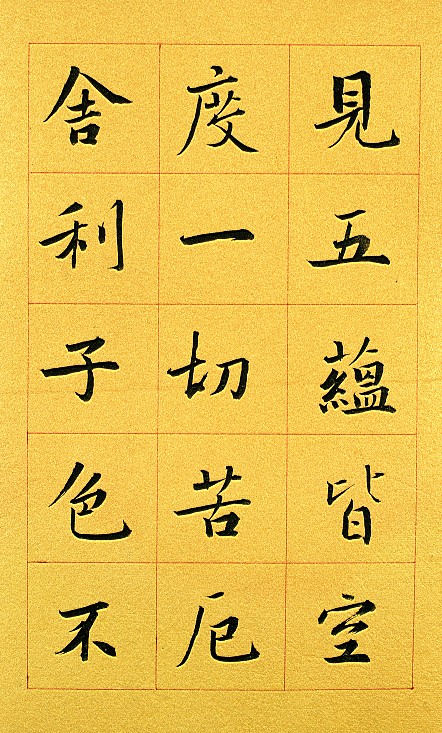 見五蘊皆空
度一切苦厄
舍利子色不